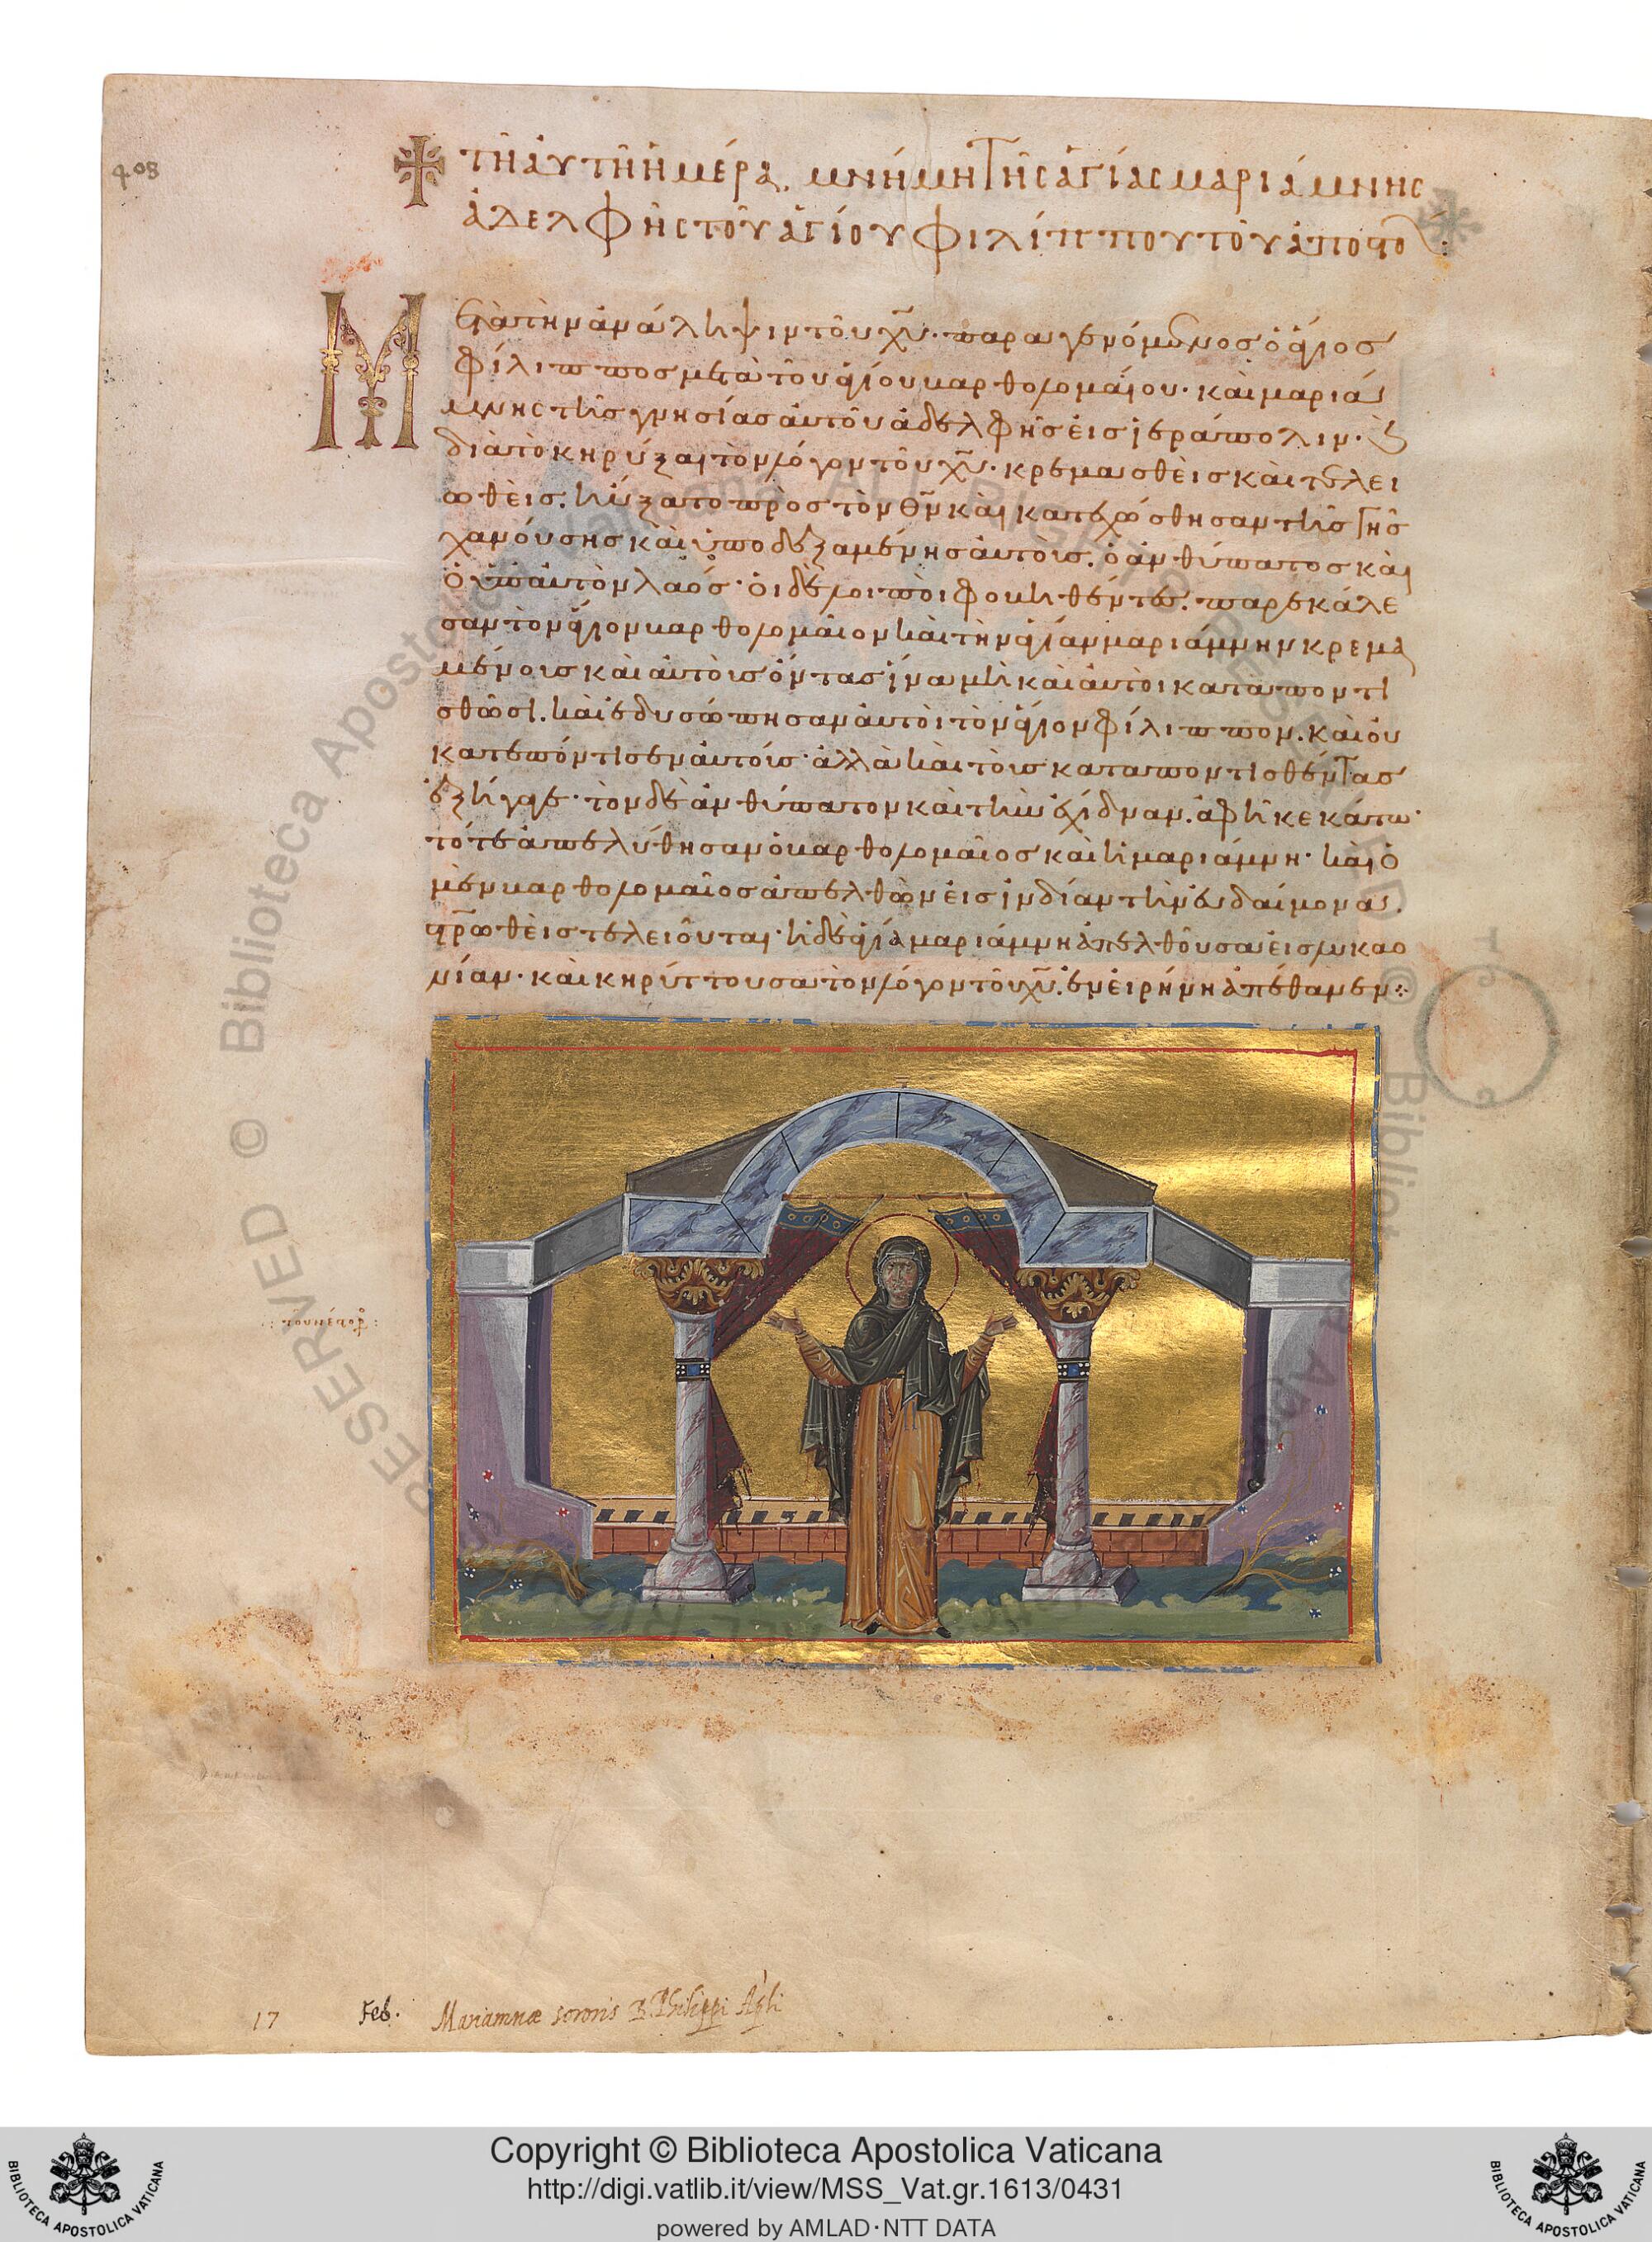 408
τῆ αὐτῆ ἡμέρα. μνήμη τῆς ἁγίας μαριάμνης
ἀδελφῆς τοῦ ἁγίου φιλίππου τοῦ ἀποστο
Μετὰ τὴν ἀνάληψιν τοῦ χυ. παραγενόμενος ὁ ἅγιος
φίλιππος μετὰ τοῦ ἁγίου βαρθολομαίου. καὶ μαριά
μνης τῆς γνησίας αὐτοῦ ἀδελφῆς εἰς ἱεράπολιν. καὶ
διὰ τὸ κηρύξαι τὸν λόγον τοῦ χυ. κρεμασθεὶς καὶ τελει
ωθεὶς. ηὔξατο πρὸς τὸν θν καὶ κατεχώσθησαν τῆς γῆς
χανούσης καὶ ὑποδεξαμένης αὐτοὺς. ὁ ἀνθύπατος καὶ
ὁ ὑπ' αὐτὸν λαός. οἱ δὲ λοιποὶ φοβηθέντες. παρεκάλε
σαν τὸν ἅγιον βαρθολομαῖον καὶ τὴν ἁγίαν μαριάμνην κρεμα
μένους καὶ αὐτοὺς ὄντας ἵνα μὴ καὶ αὐτοὶ καταποντι
σθῶσι. καὶ ἐδυσώπησαν αὐτοὶ τὸν ἅγιον φίλιππον. καὶ οὐ
κατεπόντισεν αὐτούς. ἀλλὰ καὶ τοὺς καταποντισθέντας
ἐξήγαγε. τὸν δὲ ἀνθύπατον καὶ τὴν ἔχιδναν. ἀφῆκε κάτω.
τότε ἀπελύθησαν ὁ βαρθολομαῖος καὶ ἡ μαριάμνη. καὶ ὁ
μὲν βαρθολομαῖος ἀπελθὼν εἰς ἰνδίαν τὴν εὐδαίμονα.
στρωθεὶς τελειοῦται. ἡ δὲ ἁγία μαριάμνη ἀπελθοῦσα εἰς λυκαο
νίαν. καὶ κηρύττουσα τὸν λόγον τοῦ χυ. ἐν εἰρήνη ἀπέθανεν
17 Feb. Mariamnæ sororis B. Philippi Apli
Copyright © Biblioteca Apostolica Vaticana
http://digi.vatlib.it/view/MSS_Vat.gr.1613/0431
powered by AMLAD·NTT DATA
BIBLIOTECA APOSTOLICA VATICANA
BIBLIOTECA APOSTOLICA VATICANA